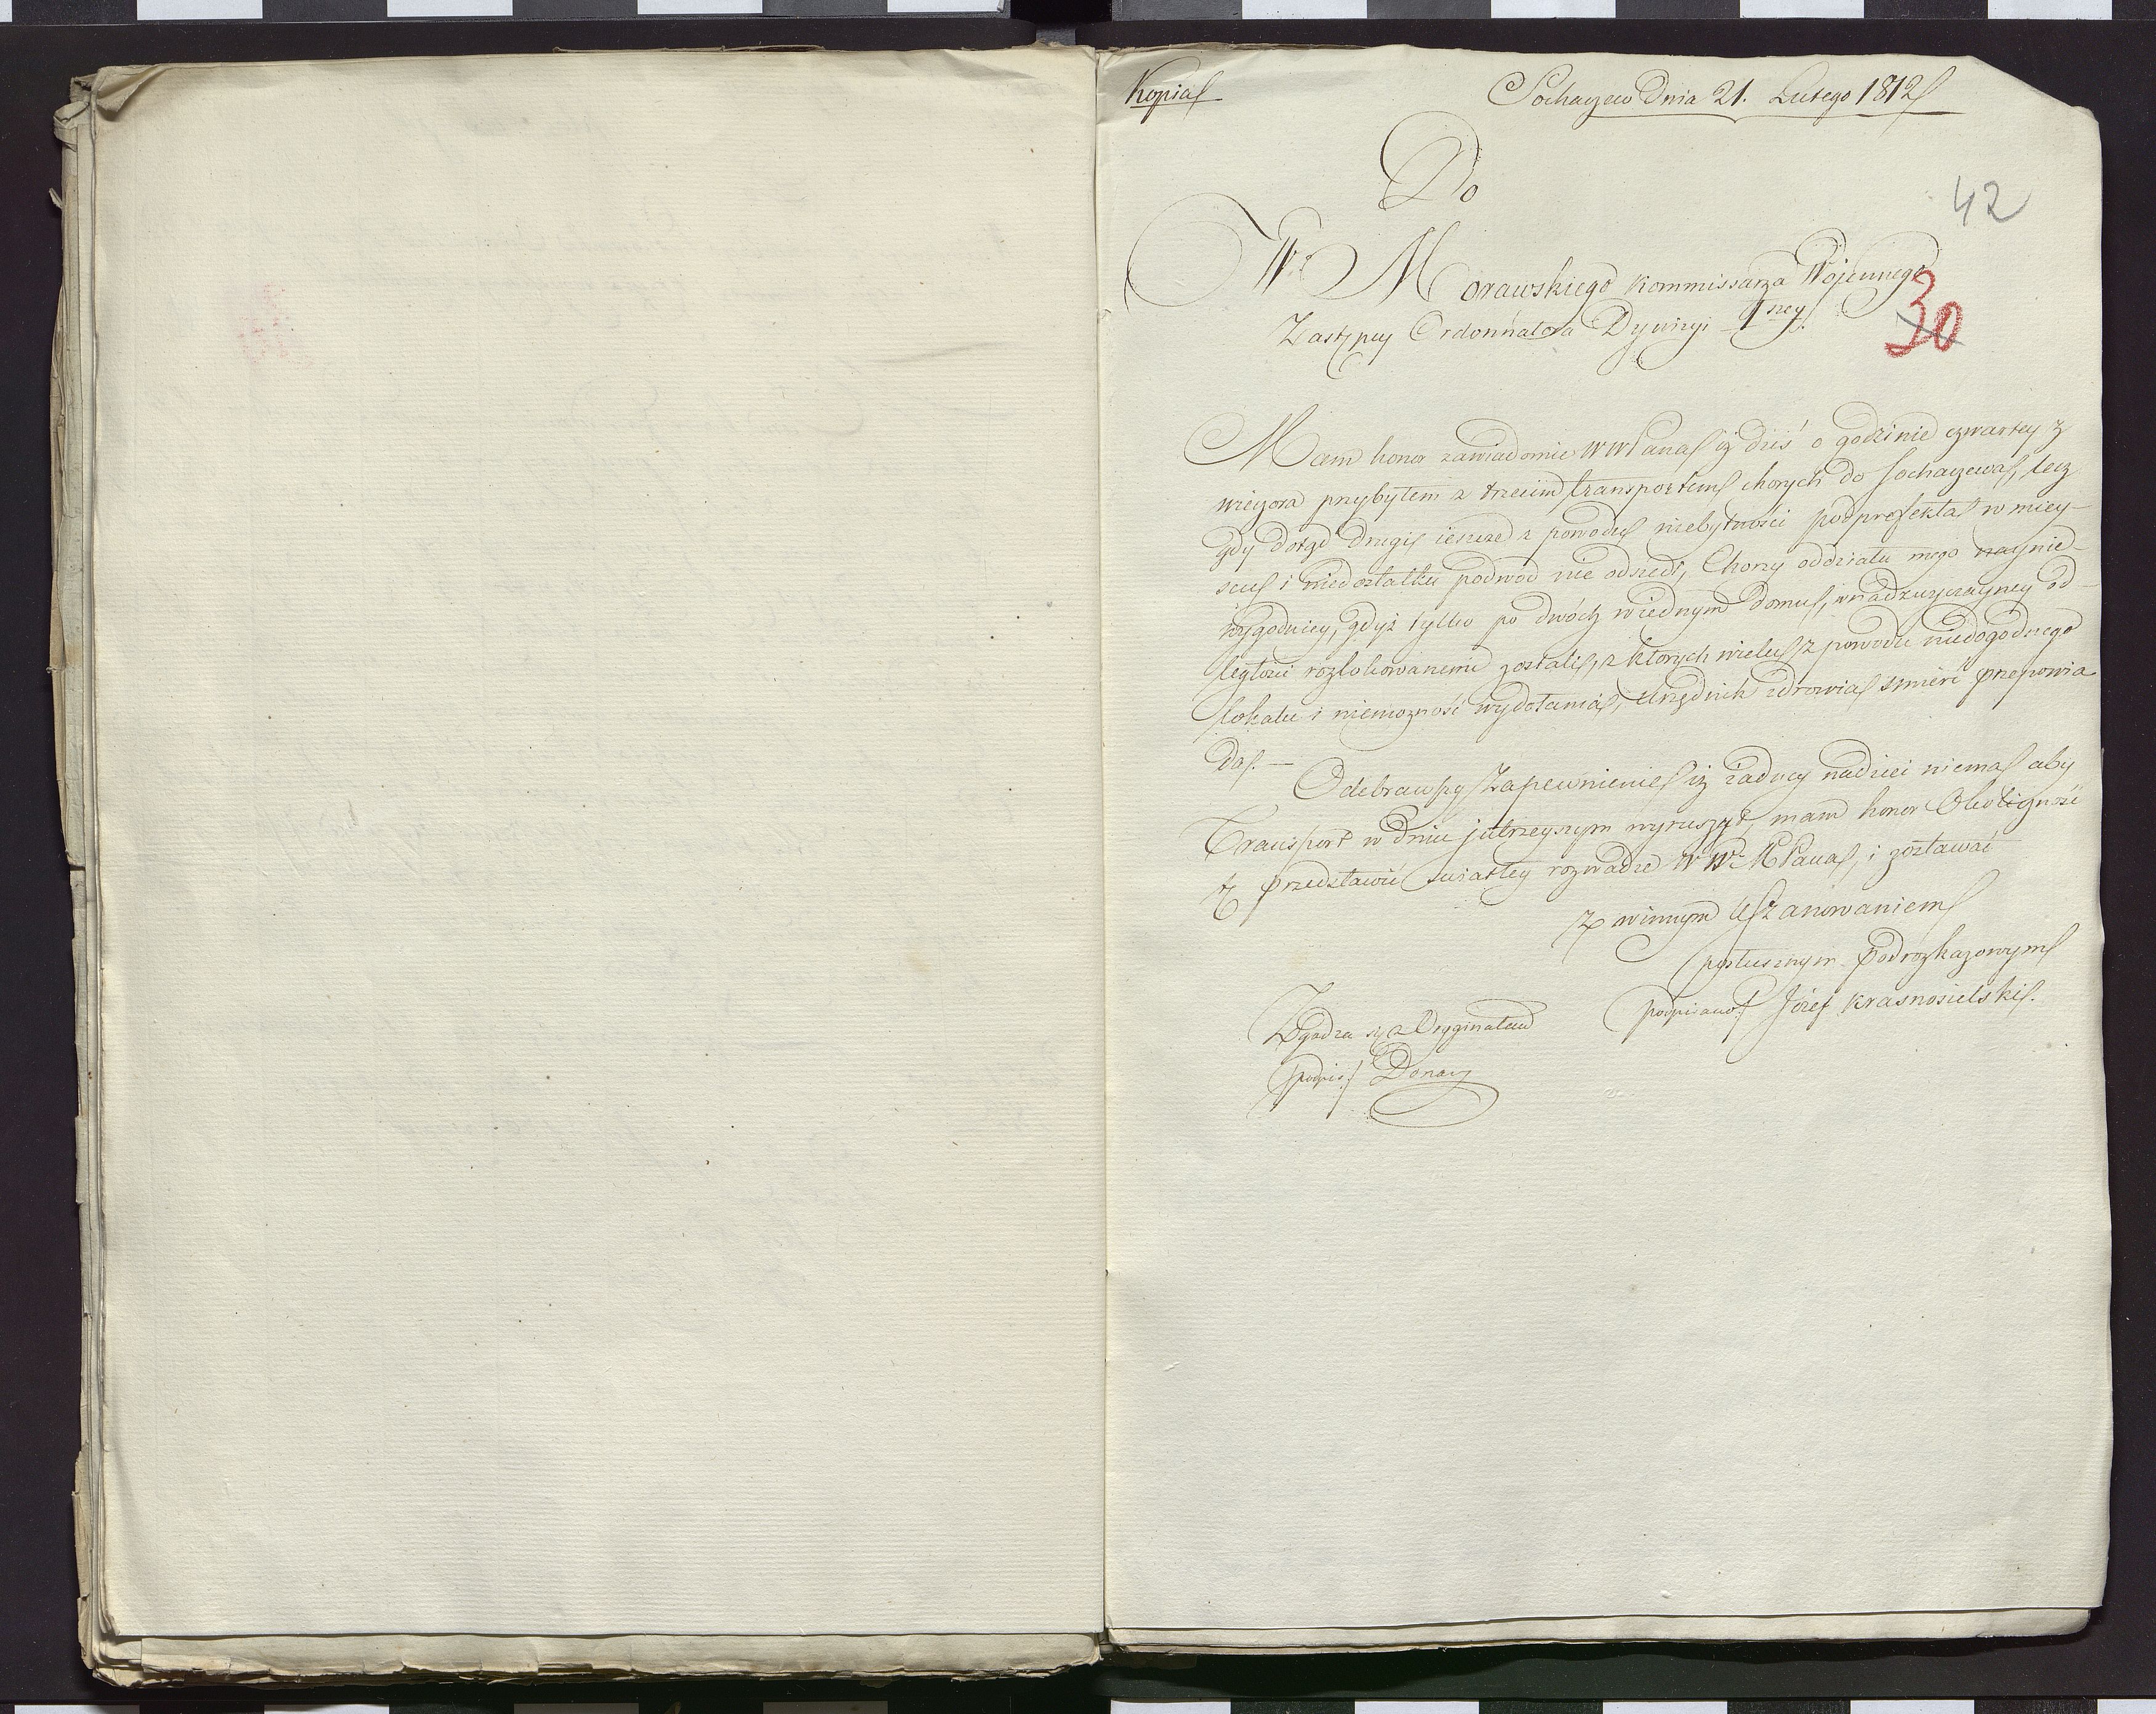 Kopia
Sochaczew Dnia 21. Lutego 1812
42
Do
W. Morawskiego Kommissarza Wojennego
Zastępcy Ordonnatora Dywizyi 1szey
30
Mam honor zawiadomic WWPana iż dziś o godzinie czwartey z
wieczora przybyłem z trzecim transportem chorych do Sochaczewa, lecz
gdy dotąd drugi ieszcze z powodu niebytności podprefekta w miey-
scu i niedostatku podwod nie odszedł, Chorzy oddziału mego naynie-
wygodniey, gdyż tylko po dwóch w iednym domu, w nadzwyczayney od-
ległości rozlokowanemi zostali, z ktorych wielu z powodu niedogodnego
lokalu i niemożność wydołania, Urzędnik zdrowia smierć przepowia
da. —
Odebrawszy Zapewnienie iż żadney nadziei niema aby
Transport w dniu jutrzeyszym wyruszył, mam honor Okoliczność
tę przedstawić swiatłey rozwadze WW. MPana, i zostawać
Z winnym Uszanowaniem
posłusznym Podrozkazowym
podpisano/ Józef Krasnosielski.
Zgadza się z Orygginałem
podpis:/ Donay